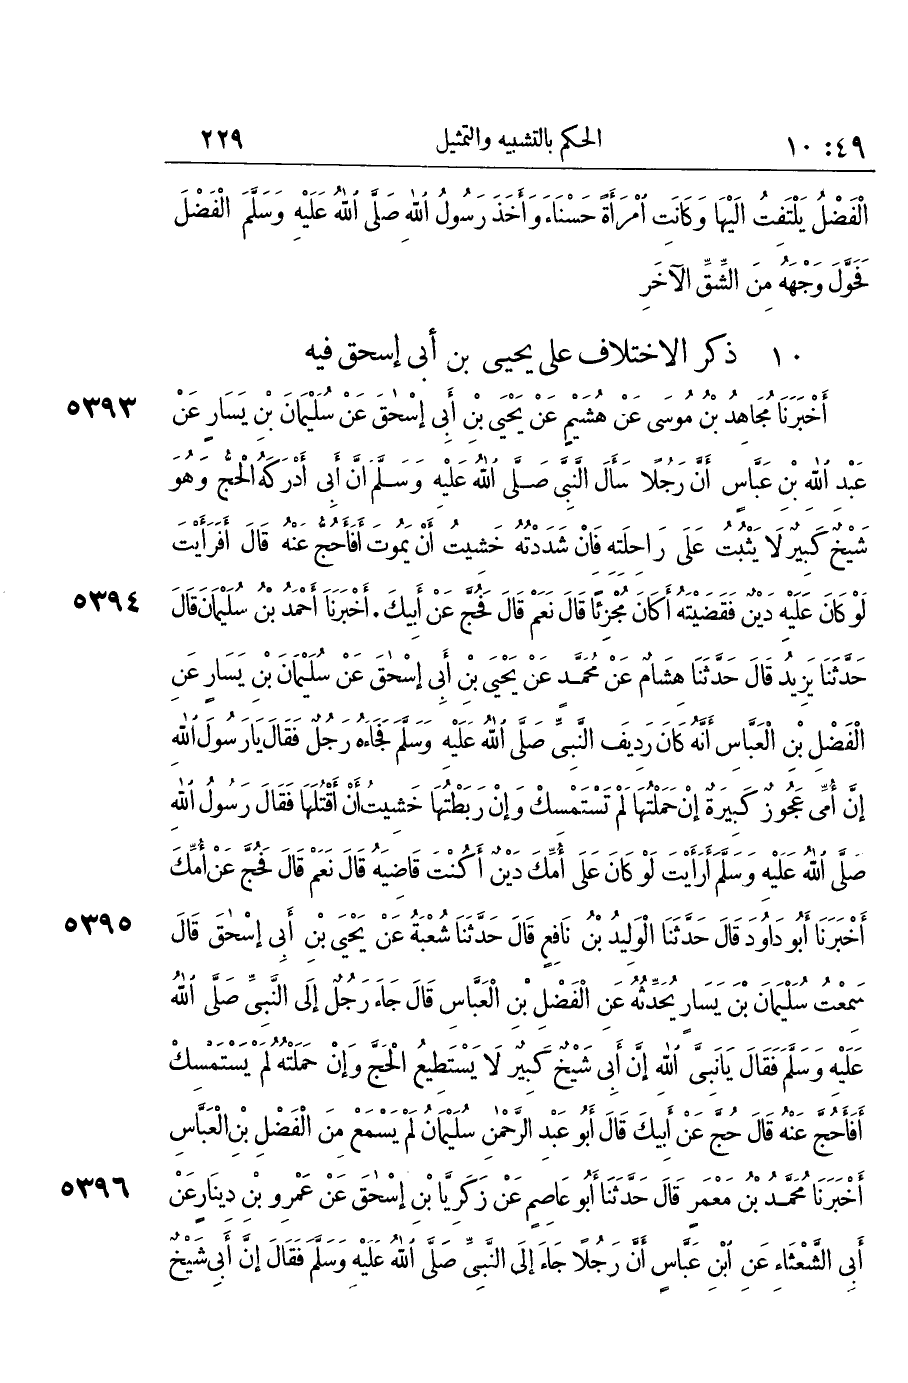 ٤٩: ١٠ الحكم بالتشبيه والتمثيل ٢٢٩
الْفَضْلُ يَلْتَفِتُ اِلَيْهَا وَكَانَتِ ٱمْرَأَةً حَسْنَاءَ وَأَخَذَ رَسُولُ ٱللّٰهِ صَلَّى ٱللّٰهُ عَلَيْهِ وَسَلَّمَ الْفَضْلَ
فَحَوَّلَ وَجْهَهُ مِنَ الشِّقِّ الْآخَرِ
١٠ ذكر الاختلاف على يحيى بن أبى إسحق فيه
أَخْبَرَنَا مُجَاهِدُ بْنُ مُوسَى عَنْ هُشَيْمٍ عَنْ يَحْيَى بْنِ أَبِى إِسْحٰقَ عَنْ سُلَيْمَانَ بْنِ يَسَارٍ عَنْ ٥٣٩٣
عَبْدِ ٱللّٰهِ بْنِ عَبَّاسٍ أَنَّ رَجُلًا سَأَلَ النَّبِىَّ صَلَّى ٱللّٰهُ عَلَيْهِ وَسَلَّمَ اَنَّ أَبِى أَدْرَكَهُ الْحَجُّ وَهُوَ
شَيْخٌ كَبِيرٌ لَا يَثْبُتُ عَلَى رَاحِلَتِهِ فَاِنْ شَدَدْتُهُ خَشِيتُ أَنْ يَمُوتَ أَفَأَحُجُّ عَنْهُ قَالَ أَفَرَأَيْتَ
لَوْ كَانَ عَلَيْهِ دَيْنٌ فَقَضَيْتَهُ أَكَانَ مُجْزِئًا قَالَ نَعَمْ قَالَ فَحُجَّ عَنْ أَبِيكَ . أَخْبَرَنَا أَحْمَدُ بْنُ سُلَيْمَانَ قَالَ ٥٣٩٤
حَدَّثَنَا يَزِيدُ قَالَ حَدَّثَنَا هِشَامٌ عَنْ مُحَمَّدٍ عَنْ يَحْيَى بْنِ أَبِى إِسْحٰقَ عَنْ سُلَيْمَانَ بْنِ يَسَارٍ عَنِ
الْفَضْلِ بْنِ الْعَبَّاسِ أَنَّهُ كَانَ رَدِيفَ النَّبِىِّ صَلَّى ٱللّٰهُ عَلَيْهِ وَسَلَّمَ فَجَاءَهُ رَجُلٌ فَقَالَ يَارَسُولَ ٱللّٰهِ
إِنَّ أُمِّى عَجُوزٌ كَبِيرَةٌ إِنْ حَمَلْتُهَا لَمْ تَسْتَمْسِكْ وَإِنْ رَبَطْتُهَا خَشِيتُ أَنْ أَقْتُلَهَا فَقَالَ رَسُولُ ٱللّٰهِ
صَلَّى ٱللّٰهُ عَلَيْهِ وَسَلَّمَ أَرَأَيْتَ لَوْ كَانَ عَلَى أُمِّكَ دَيْنٌ أَكُنْتَ قَاضِيَهُ قَالَ نَعَمْ قَالَ فَحُجَّ عَنْ أُمِّكَ
أَخْبَرَنَا أَبُو دَاوُدَ قَالَ حَدَّثَنَا الْوَلِيدُ بْنُ نَافِعٍ قَالَ حَدَّثَنَا شُعْبَةُ عَنْ يَحْيَى بْنِ أَبِى إِسْحٰقَ قَالَ ٥٣٩٥
سَمِعْتُ سُلَيْمَانَ بْنَ يَسَارٍ يُحَدِّثُهُ عَنِ الْفَضْلِ بْنِ الْعَبَّاسِ قَالَ جَاءَ رَجُلٌ إِلَى النَّبِىِّ صَلَّى ٱللّٰهُ
عَلَيْهِ وَسَلَّمَ فَقَالَ يَانَبِىَّ ٱللّٰهِ إِنَّ أَبِى شَيْخٌ كَبِيرٌ لَا يَسْتَطِيعُ الْحَجَّ وَإِنْ حَمَلْتُهُ لَمْ يَسْتَمْسِكْ
أَفَأَحُجُّ عَنْهُ قَالَ حُجَّ عَنْ أَبِيكَ قَالَ أَبُو عَبْدِ الرَّحْمٰنِ سُلَيْمَانُ لَمْ يَسْمَعْ مِنَ الْفَضْلِ بْنِ الْعَبَّاسِ
أَخْبَرَنَا مُحَمَّدُ بْنُ مَعْمَرٍ قَالَ حَدَّثَنَا أَبُو عَاصِمٍ عَنْ زَكَرِيَّا بْنِ إِسْحٰقَ عَنْ عَمْرِو بْنِ دِينَارٍ عَنْ ٥٣٩٦
أَبِى الشَّعْثَاءِ عَنِ ابْنِ عَبَّاسٍ أَنَّ رَجُلًا جَاءَ إِلَى النَّبِىِّ صَلَّى ٱللّٰهُ عَلَيْهِ وَسَلَّمَ فَقَالَ إِنَّ أَبِى شَيْخٌ